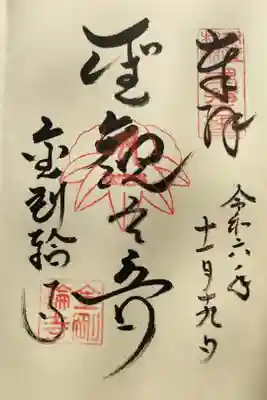 奉拝
令和六年
十一月十九日
聖観世音
金剛輪寺
金剛
輪寺